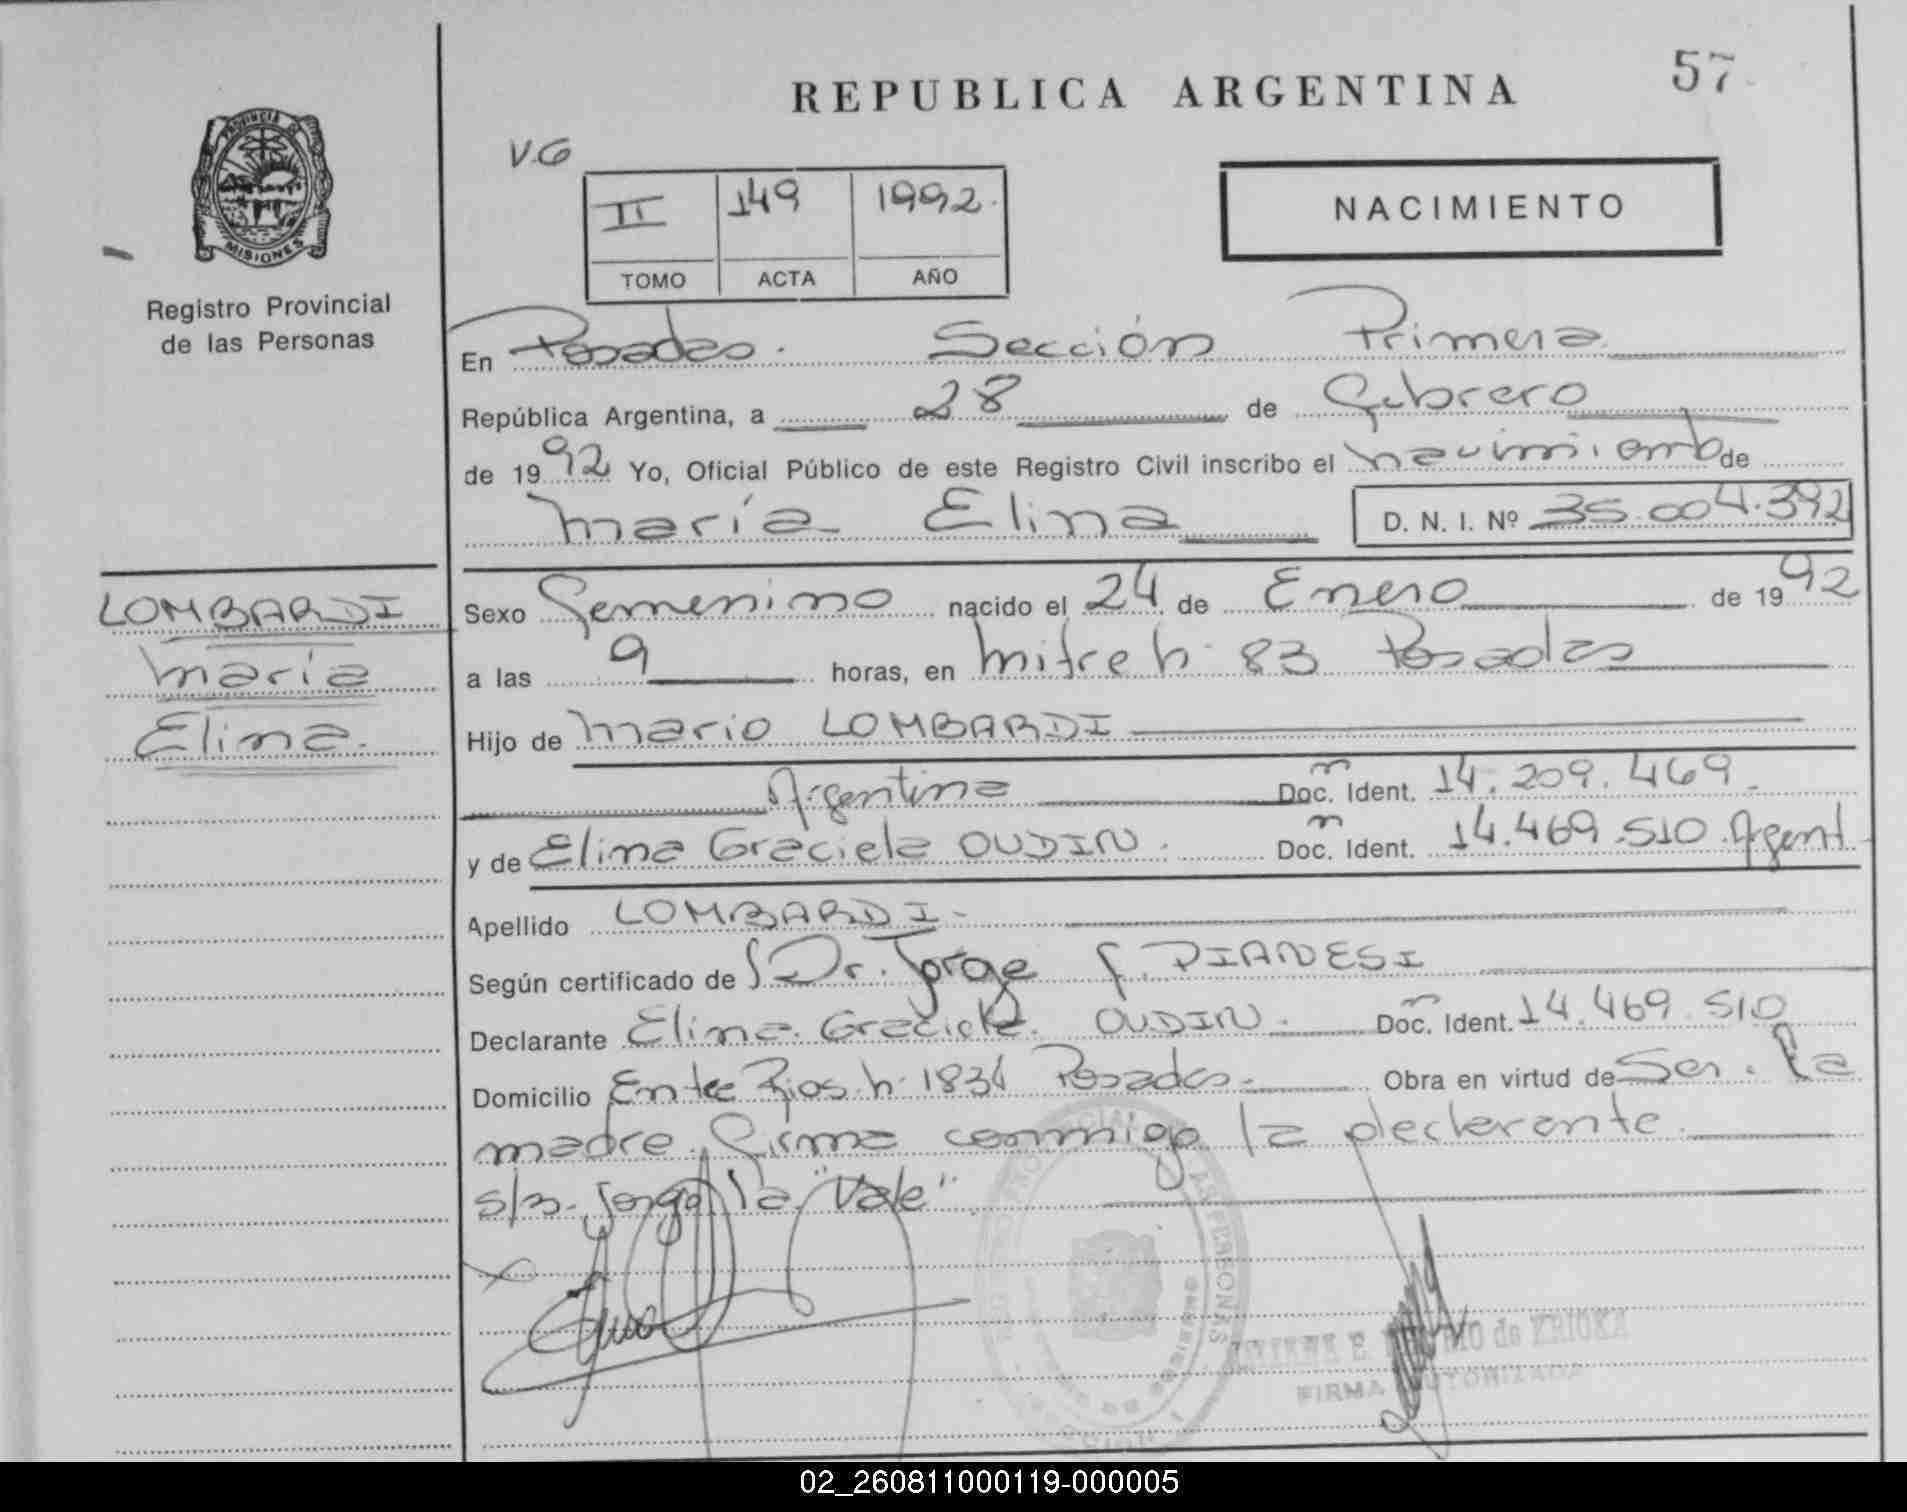 57
REPUBLICA ARGENTINA
V.G
II 149 1992.
TOMO ACTA AÑO
NACIMIENTO
PROVINCIA DE
MISIONES
Registro Provincial
de las Personas
En Posadas. Sección Primera
República Argentina, a 28 de Febrero
de 1992 Yo, Oficial Público de este Registro Civil inscribo el nacimiento de
María Elina D. N. I. Nº 35.004.392
LOMBARDI
María
Elina.
Sexo Femenino nacido el 24 de Enero de 1992
a las 9 horas, en Mitre h. 83 Posadas
Hijo de Mario LOMBARDI
Argentina Doc. Ident. 14.209.469.
y de Elina Graciela OUDIN. Doc. Ident. 14.469.510. Argent.
Apellido LOMBARDI.
Según certificado de Dr. Jorge F. PIANESI
Declarante Elina Graciela OUDIN. Doc. Ident. 14.469.510
Domicilio Entre Rios h. 1834 Posadas. Obra en virtud de Ser. la
madre. Firma conmigo la declarante.
s/r. Jorge la "Vale"
PERSONAS
MISIONES
de KRIOKA
FIRMA AUTORIZADA
02_260811000119-000005